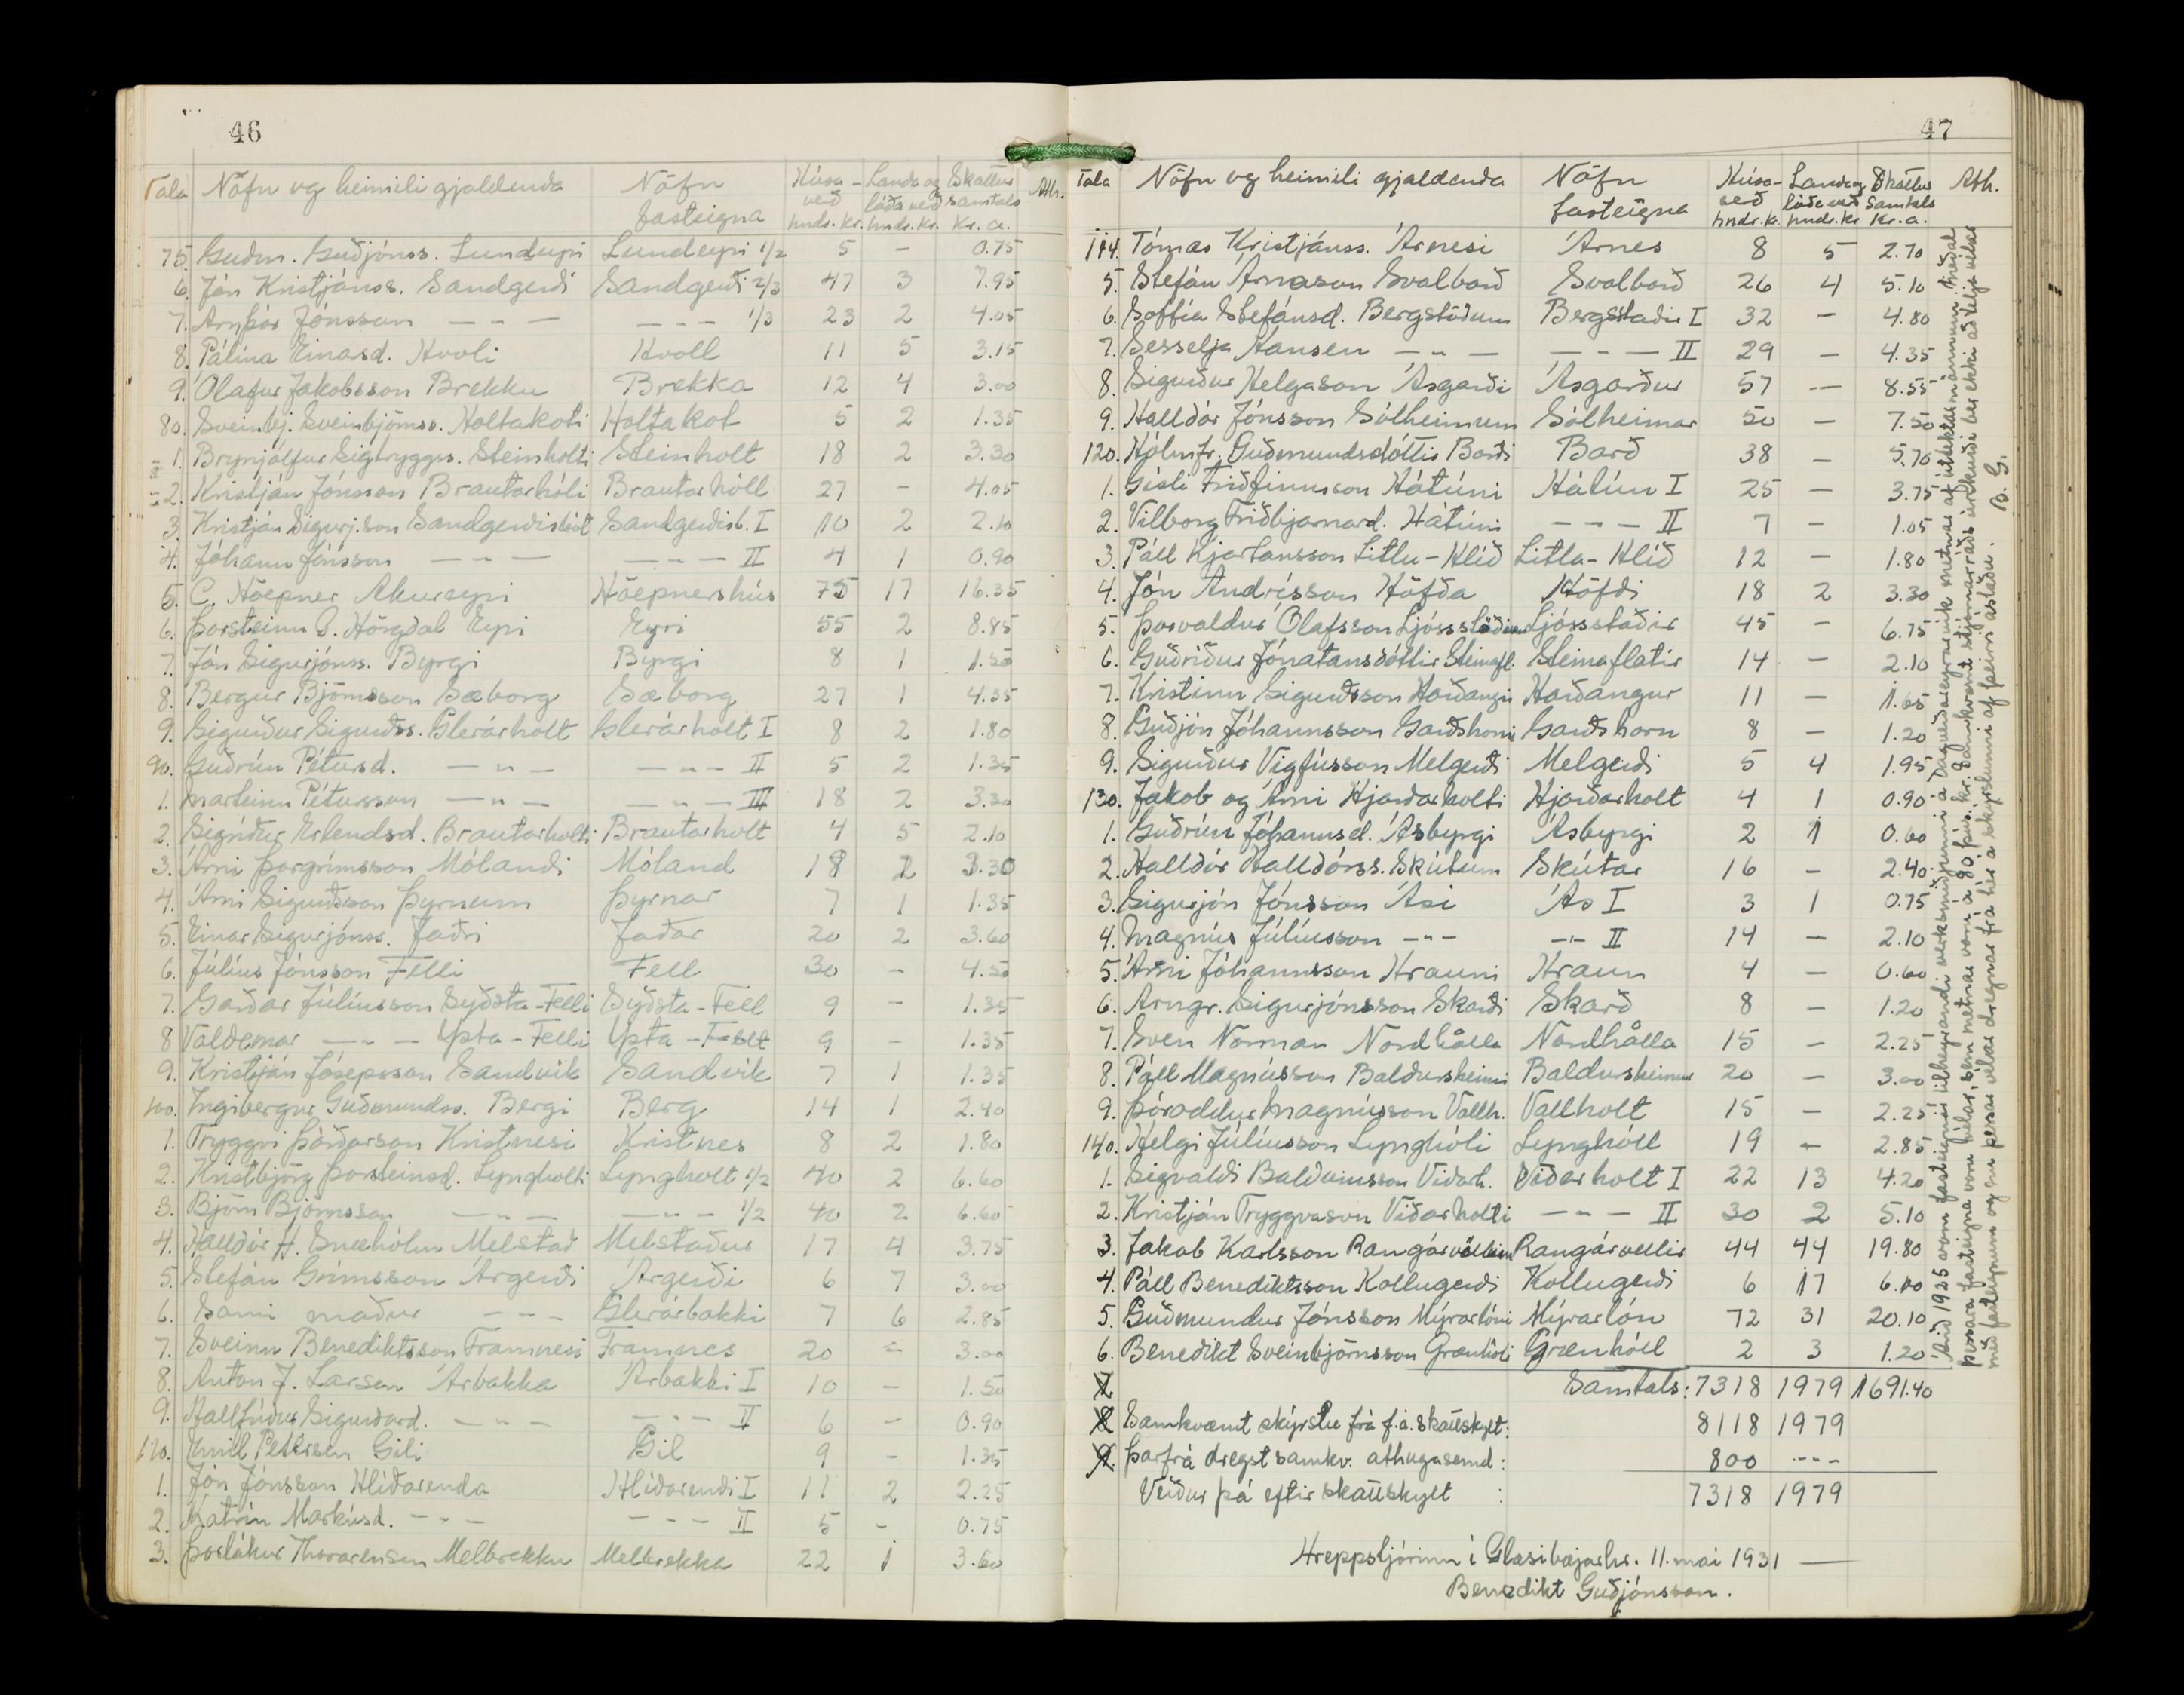 46
Tala Nöfn og heimili gjaldenda Nöfn fasteigna Húsa-verð hndr. kr. Landa og lóða verð hndr. kr. Skattur samtals Kr. a. Ath.
75. Guðm. Guðjónss. Lundeyri Lundeyri 1/2 5 – 0.75
6. Jón Kristjánss. Sandgerði Sandgerði 2/3 47 3 7.95
7. Arnþór Jónsson – – – – – – 1/3 23 2 4.05
8. Pálína Einarsd. Hvoli Hvoll 11 5 3.15
9. Ólafur Jakobsson Brekku Brekka 12 4 3.00
80. Sveinbj. Sveinbjörnss. Holtakoti Holtakot 5 2 1.35
1. Brynjólfur Sigtryggs. Steinholti Steinholt 18 2 3.30
2. Kristján Jónsson Brautarhóli Brautarhóll 27 – 4.05
3. Kristján Sigurj.son Sandgerðisbót Sandgerðisb. I 10 2 2.10
4. Jóhann Jónsson – – – – – – II 4 1 0.90
5. C. Höepner Akureyri Höepnershús 75 17 16.35
6. Þorsteinn G. Hörgdal Eyri Eyri 55 2 8.85
7. Jón Sigurjónss. Byrgi Byrgi 8 1 1.50
8. Bergur Björnsson Sæborg Sæborg 27 1 4.35
9. Sigurður Sigurðss. Glerárholt Glerárholt I 8 2 1.80
90. Guðrún Pétursd. – " – – " – II 5 2 1.35
1. Marteinn Pétursson – " – – " – III 18 2 3.30
2. Sigríður Erlendsd. Brautarholti Brautarholt 4 5 2.10
3. Árni Þorgrímsson Mólandi Móland 18 2 3.30
4. Árni Sigurðsson Þyrnum Þyrnar 7 1 1.35
5. Einar Sigurjónss. Jaðri Jaðar 20 2 3.60
6. Júlíus Jónsson Felli Fell 30 – 4.50
7. Garðar Júlíusson Syðsta-Felli Syðsta-Fell 9 – 1.35
8 Valdemar – " – Ysta-Felli Ysta-Fell 9 – 1.35
9. Kristján Jósepsson Sandvík Sandvík 7 1 1.35
100. Ingibergur Guðmundss. Bergi Berg 14 1 2.40
1. Tryggvi Þórðarson Kristnesi Kristnes 8 2 1.80
2. Kristbjörg Þorsteinsd. Lyngholti Lyngholt 1/2 40 2 6.60
3. Björn Björnsson – " – – " – 1/2 40 2 6.60
4. Halldór H. Snæhólm Melstað Melstaður 17 4 3.75
5. Stefán Grímsson Árgerði Árgerði 6 7 3.00
6. Sami maður – – – Glerárbakki 7 6 2.85
7. Sveinn Benediktsson Framnesi Framnes 20 – 3.00
8. Anton J. Larsen Árbakka Árbakki I 10 – 1.50
9. Hallfríður Sigurðard. – " – – – – II 6 – 0.90
110. Emil Petersen Gili Gil 9 – 1.35
1. Jón Jónsson Hlíðarenda Hlíðarendi I 11 2 2.25
2. Katrín Markúsd. – – – – – – II 5 – 0.75
3. Þorlákur Thorarensen Melbrekku Melbrekka 22 1 3.60
47
Tala Nöfn og heimili gjaldenda Nöfn fasteigna Húsa-verð hndr. kr. Landa og lóða verð hndr. kr Skattur samtals Kr. a. Ath.
114. Tómas Kristjánss. Árnesi Árnes 8 5 2.70
5. Stefán Árnason Svalbarð Svalbarð 26 4 5.10
6. Soffía Stefánsd. Bergstöðum Bergsstaðir I 32 – 4.80
7. Sesselja Hansen – " – – " – II 29 – 4.35
8. Sigurður Helgason Ásgarði Ásgarður 57 – 8.55
9. Halldór Jónsson Sólheimum Sólheimar 50 – 7.50
120. Hólmfr. Guðmundsdóttir Barði Barð 38 – 5.70
1. Gísli Friðfinnsson Hátúni Hátún I 25 – 3.75
2. Vilborg Friðbjarnard. Hátúni – – – II 7 – 1.05
3. Páll Kjartansson Litlu-Hlíð Litla-Hlíð 12 – 1.80
4. Jón Andrésson Höfða Höfði 18 2 3.30
5. Þorvaldur Ólafsson Ljósstöðum Ljósstaðir 45 – 6.75
6. Guðríður Jónatansdóttir Steinafl. Steinaflatir 14 – 2.10
7. Kristinn Sigurðsson Harðangri Harðangur 11 – 1.65
8. Guðjón Jóhannsson Garðshorni Garðshorn 8 – 1.20
9. Sigurður Vigfússon Melgerði Melgerði 5 4 1.95
130. Jakob og Árni Hjarðarholti Hjarðarholt 4 1 0.90
1. Guðrún Jóhannsd. Ásbyrgi Ásbyrgi 2 1 0.60
2. Halldór Halldórss. Skútum Skútar 16 – 2.40
3. Sigurjón Jónsson Ási Ás I 3 1 0.75
4. Magnús Júlíusson – " – – " – II 14 – 2.10
5. Árni Jóhannsson Hrauni Hraun 4 – 0.60
6. Arngr. Sigurjónsson Skarði Skarð 8 – 1.20
7. Sven Norman Nordhålla Nordhålla 15 – 2.25
8. Páll Magnússon Baldursheimi Baldursheimur 20 – 3.00
9. Þóroddur Magnússon Vallh. Vallholt 15 – 2.25
140. Helgi Júlíusson Lynghóli Lynghóll 19 – 2.85
1. Sigvaldi Baldvinsson Viðarh. Viðarholt I 22 13 4.20
2. Kristján Tryggvason Viðarholti – " – II 30 2 5.10
3. Jakob Karlsson Rangárvöllum Rangárvellir 44 44 19.80
4. Páll Benediktsson Kollugerði Kollugerði 6 17 6.00
5. Guðmundur Jónsson Mýrarlóni Mýrarlón 72 31 20.10
6. Benedikt Sveinbjörnsson Grænhóli Grænhóll 2 3 1.20
7 Samtals: 7318 1979 1691.40
8 Samkvæmt skýrslu frá f.á. skattskylt: 8118 1979
9. Þarfrá dregst samkv. athugasemd: 800 ---
Verður þá eftir skattskylt : 7318 1979
Hreppstjórinn í Glæsibæjarhr. 11. maí 1931 –
Benedikt Guðjónsson.
Árið 1925 voru fasteignir tilheyrandi verksmiðjunni á Dagverðareyrarvík metnar af útektarmönnum. Meðal
þessara fasteigna voru vélar, sem metnar voru á 80 þús. kr. Samkvæmt stjórnarráðs úrskurði ber ekki að telja vélar
með fasteignum og eru þessar vélar dregnar frá hér á skýrslunni af þeirri ástæðu. B. G.